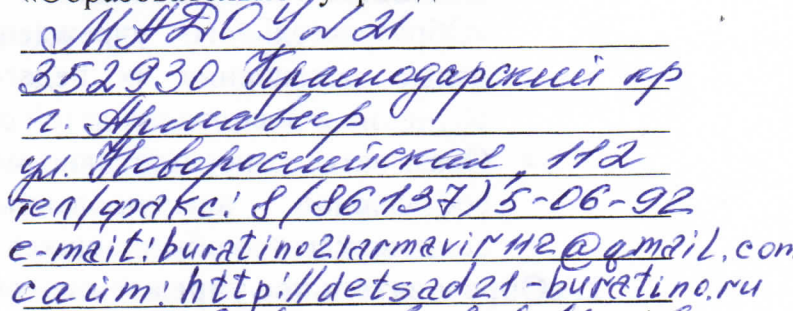 МАДОУ №21
352930 Краснодарский кр
г. Армавир
ул. Новоросийская, 112
тел/факс: 8(86137)5-06-92
e-mail: buratino21armavir112@gmail.com
сайт: http://detsad21-buratino.ru